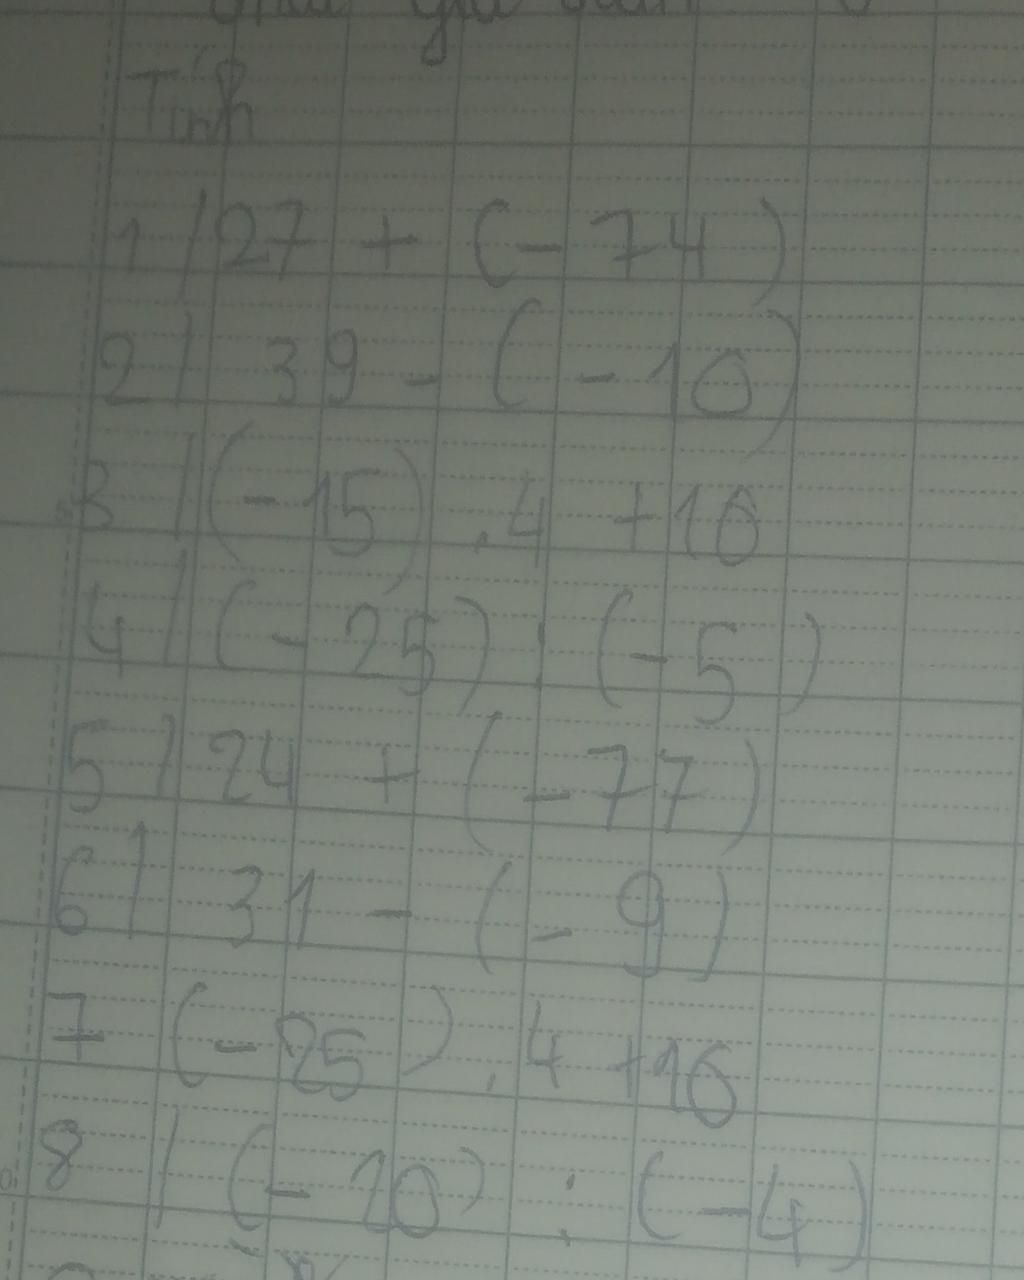 Tính
1/ 27 + (-74)
2/ 39 - (-10)
3/ (-15) . 4 + 10
4/ (-25) : (-5)
5/ 24 + (-77)
6/ 31 - (-9)
7 (-25) . 4 + 16
8/ (-20) : (-4)